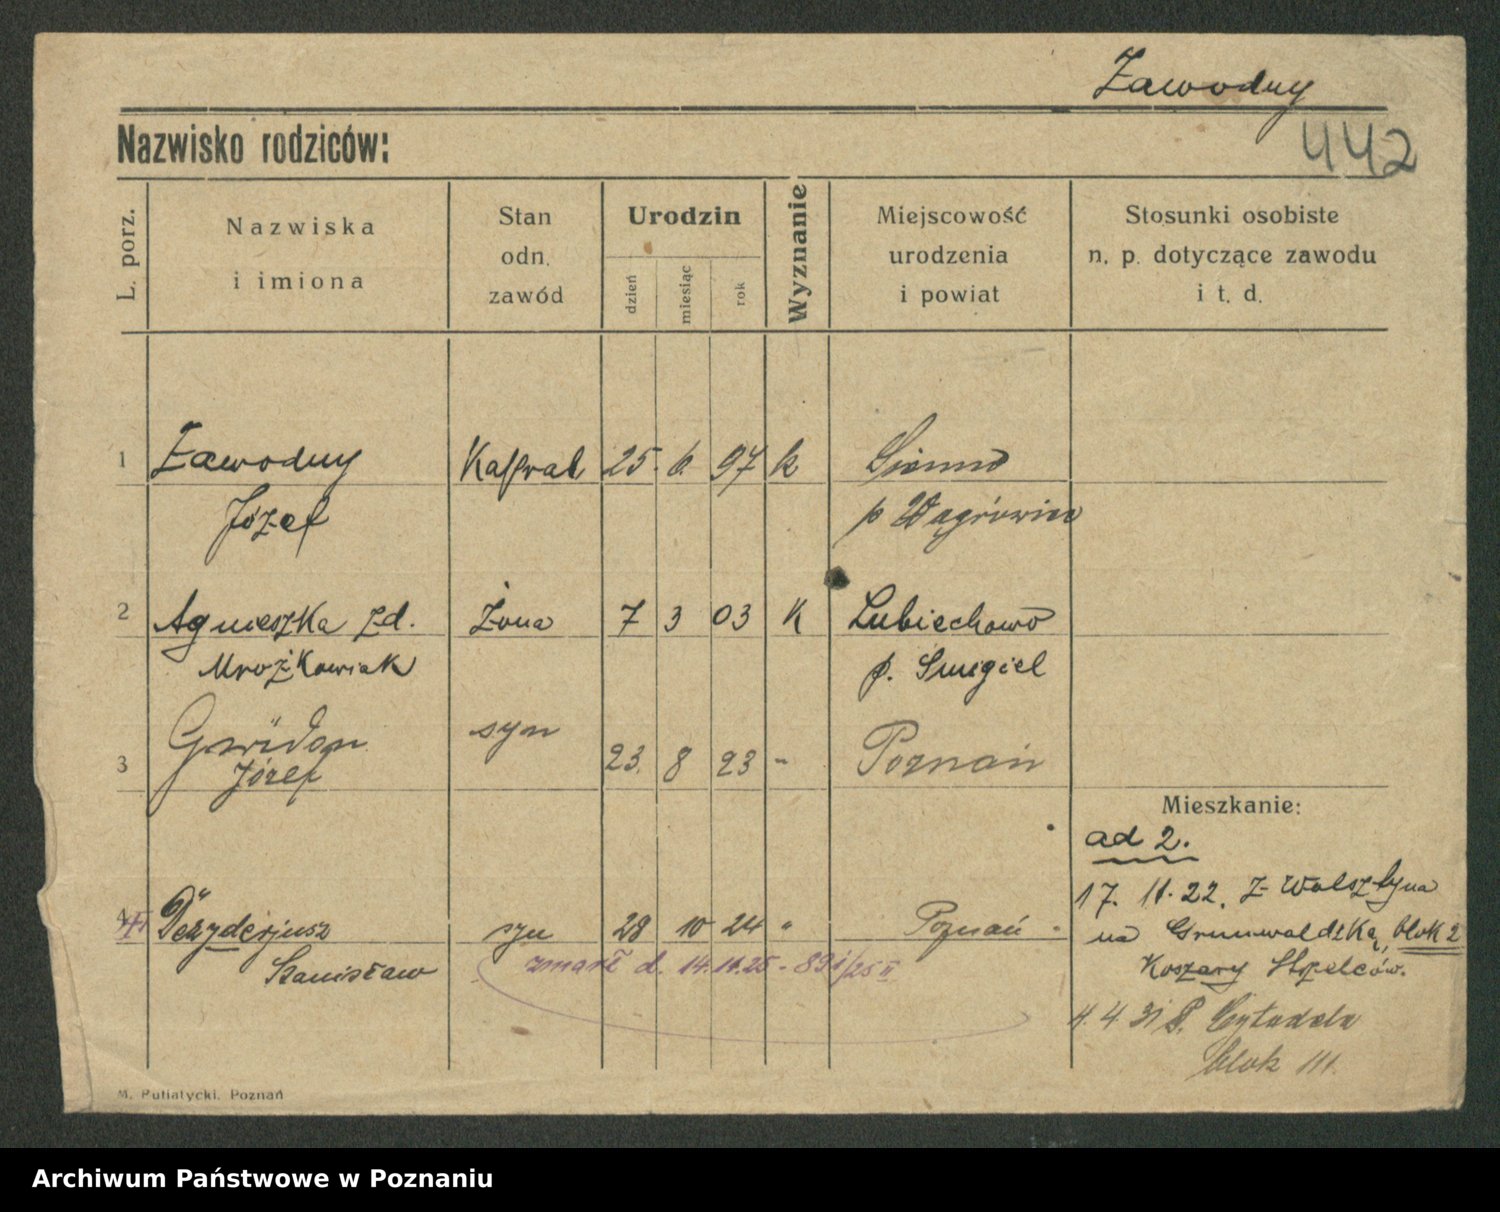 Zawodny
Nazwisko rodziców:
442
L. porz.
Nazwiska
i imiona
Stan
odn.
zawód
Urodzin
dzień
miesiąc
rok
Wyznanie
Miejscowość
urodzenia
i powiat
Stosunki osobiste
n. p. dotyczące zawodu
i t. d.
1 Zawodny Kapral 25. 6. 97 k Sienno
Józef p Wągrówiec
2 Agnieszka zd. Żona 7 3 03 K Lubiechowo
Mrożkowiak p. Śmigiel
3 Gwidon syn 23. 8 23 " Poznań
Józef
Mieszkanie:
ad 2.
17. 11. 22. z Wolsztyna
na Grunwaldzką, blok 2
Koszary Strzelców.
4. 4. 31 Cytadela
blok III.
4 Dezyderjusz syn 28 10 24 " Poznań
Stanisław
zmarł d. 14.11.25 - 891/25 II
M. Putiatycki, Poznań
Archiwum Państwowe w Poznaniu